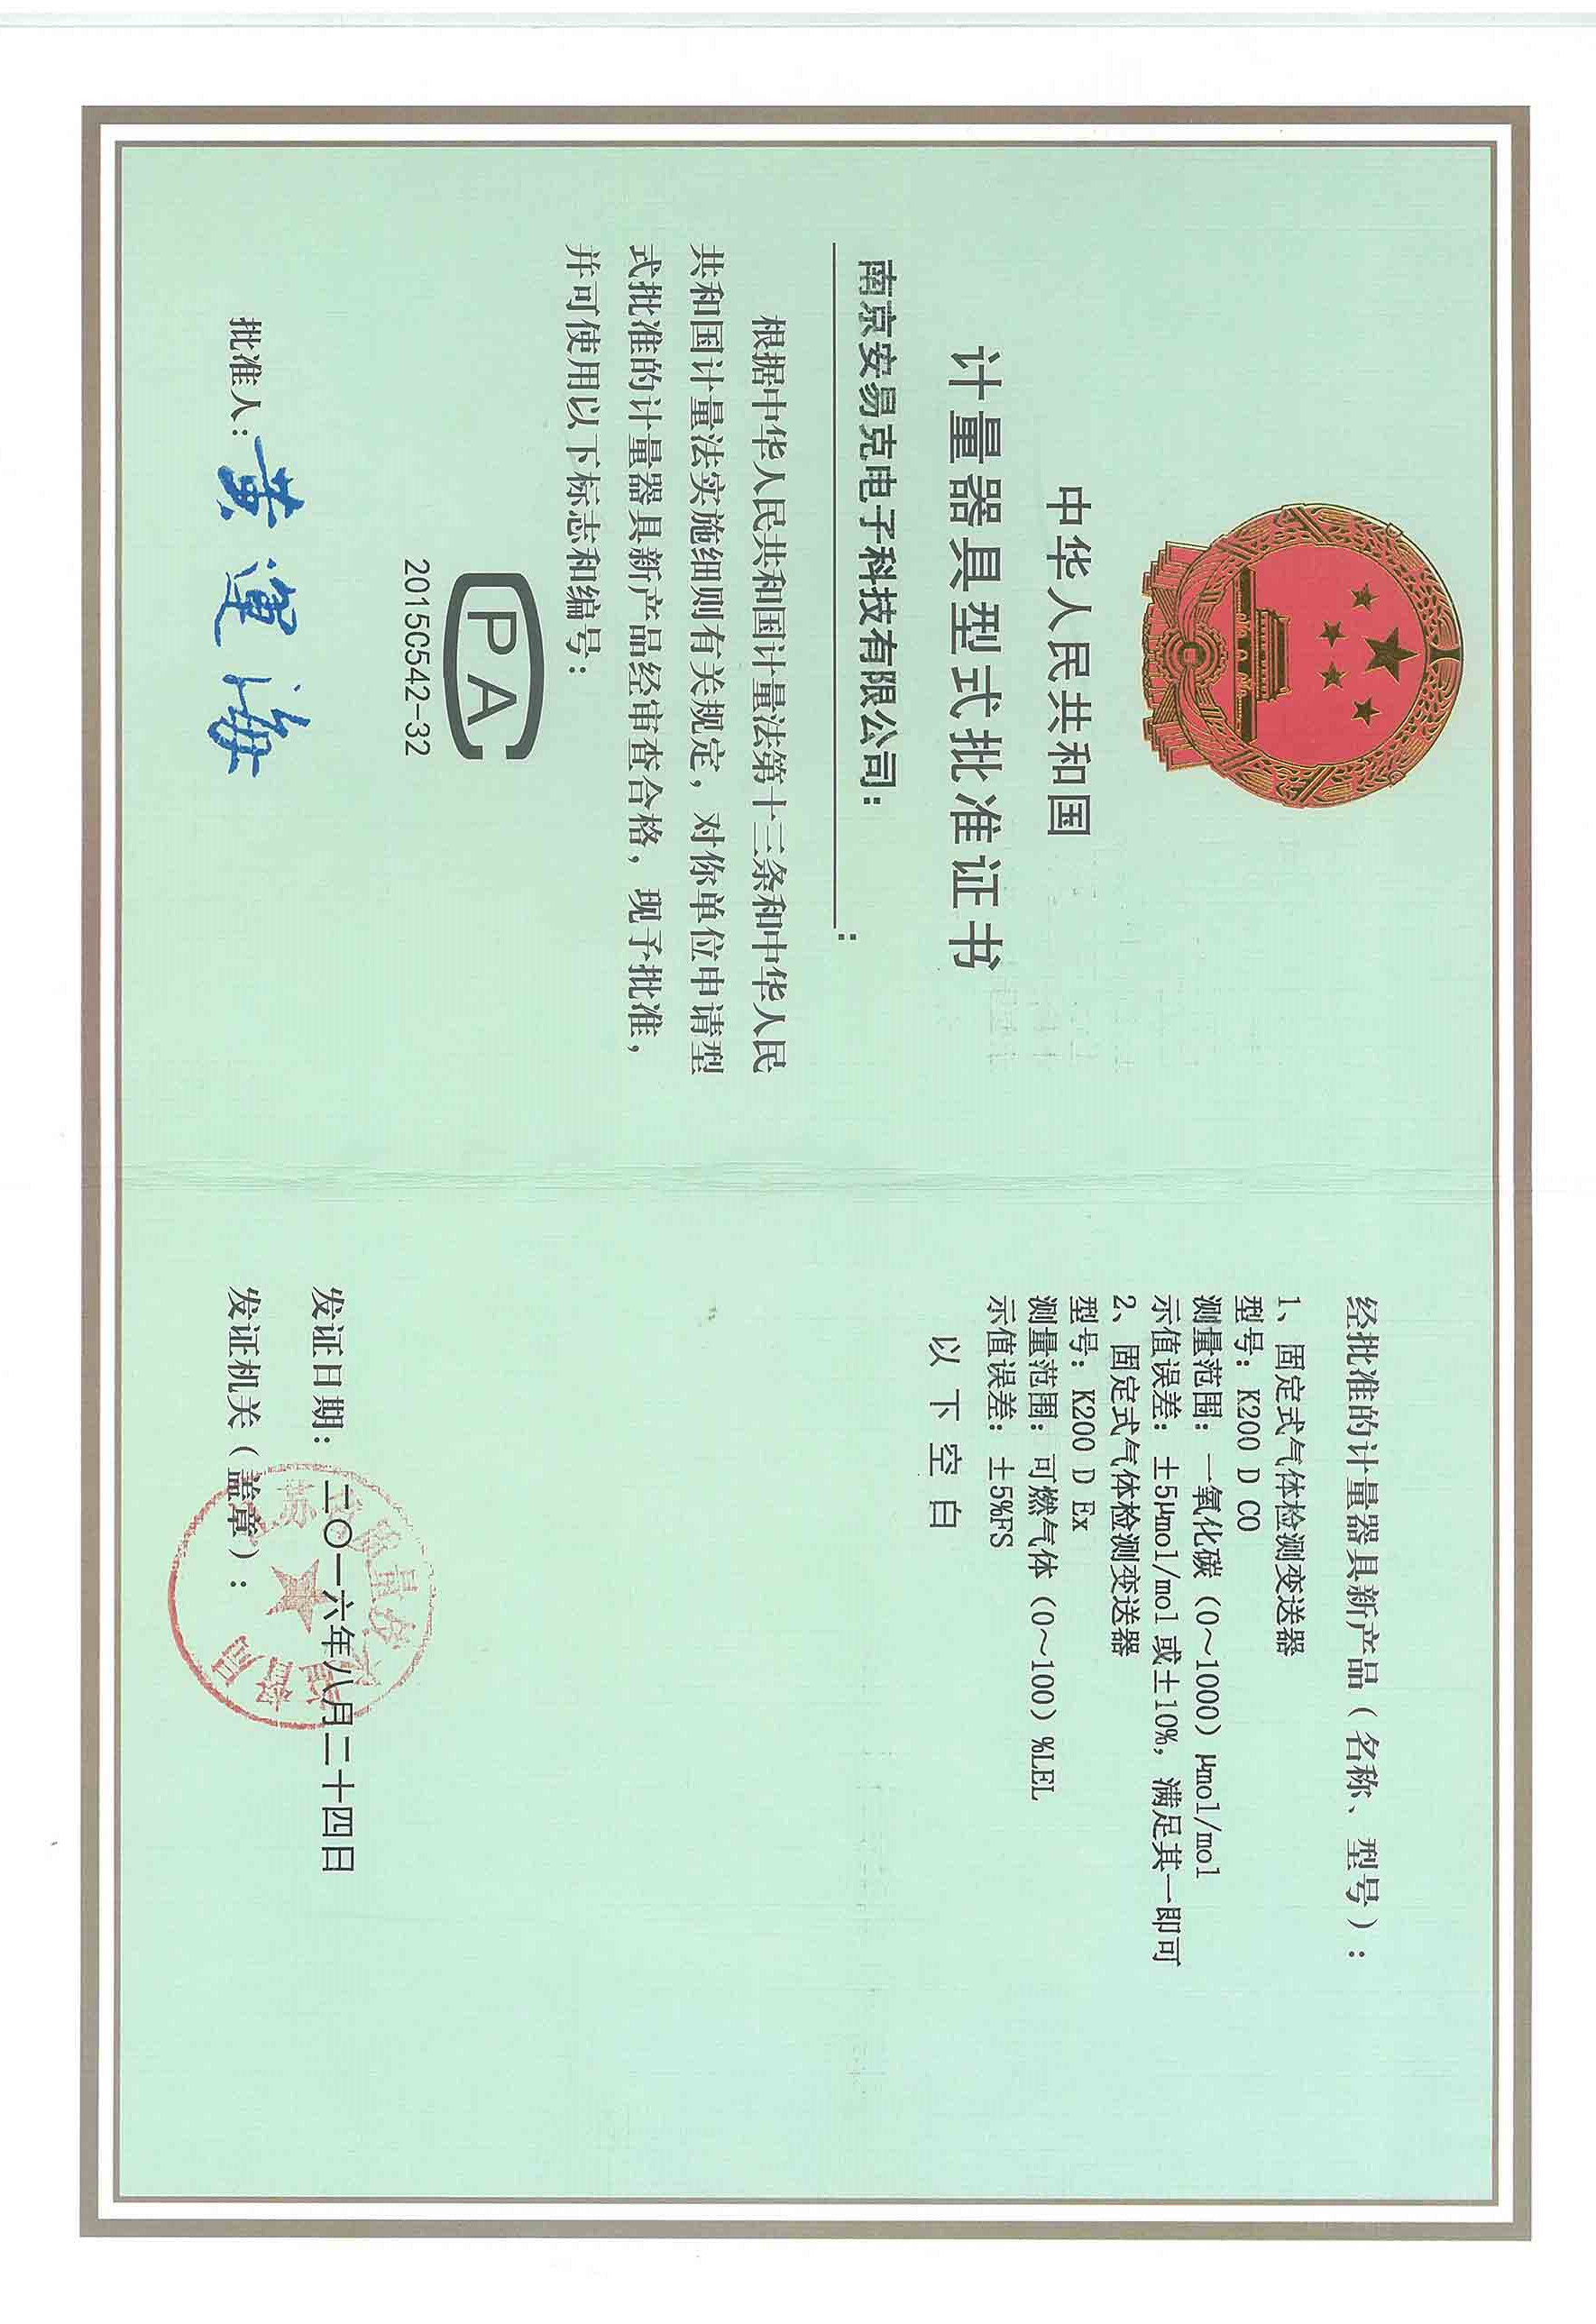 中华人民共和国
计量器具型式批准证书
南京安易克电子科技有限公司：
：
根据中华人民共和国计量法第十三条和中华人民
共和国计量法实施细则有关规定，对你单位申请型
式批准的计量器具新产品经审查合格，现予批准，
并可使用以下标志和编号：
CPA
2015C542-32
批准人：黄运海
经批准的计量器具新产品（名称、型号）：
1、固定式气体检测变送器
型号：K200 D CO
测量范围：一氧化碳（0～1000）μmol/mol
示值误差：±5μmol/mol 或±10%，满足其一即可
2、固定式气体检测变送器
型号：K200 D Ex
测量范围：可燃气体（0～100）%LEL
示值误差：±5%FS
以下空白
发证日期：二〇一六年八月二十四日
发证机关（盖章）：